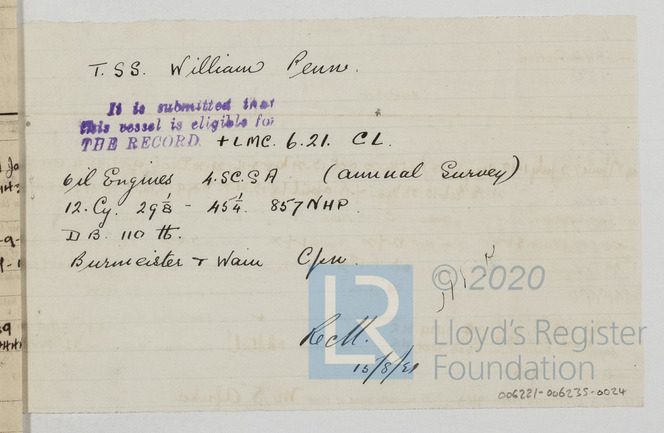 T.SS. William Penn.
It is submitted that
this vessel is eligible for
THE RECORD. + LMC. 6.21. CL.
Oil Engines 4.SC.SA (annual Survey)
12. Cy. 29 1/8 - 45 1/4. 857 NHP.
DB. 110 lb.
Burmeister & Wain Cpn.
LR
© 2020
Lloyd's Register
Foundation
15/8/21
006221-006235-0024